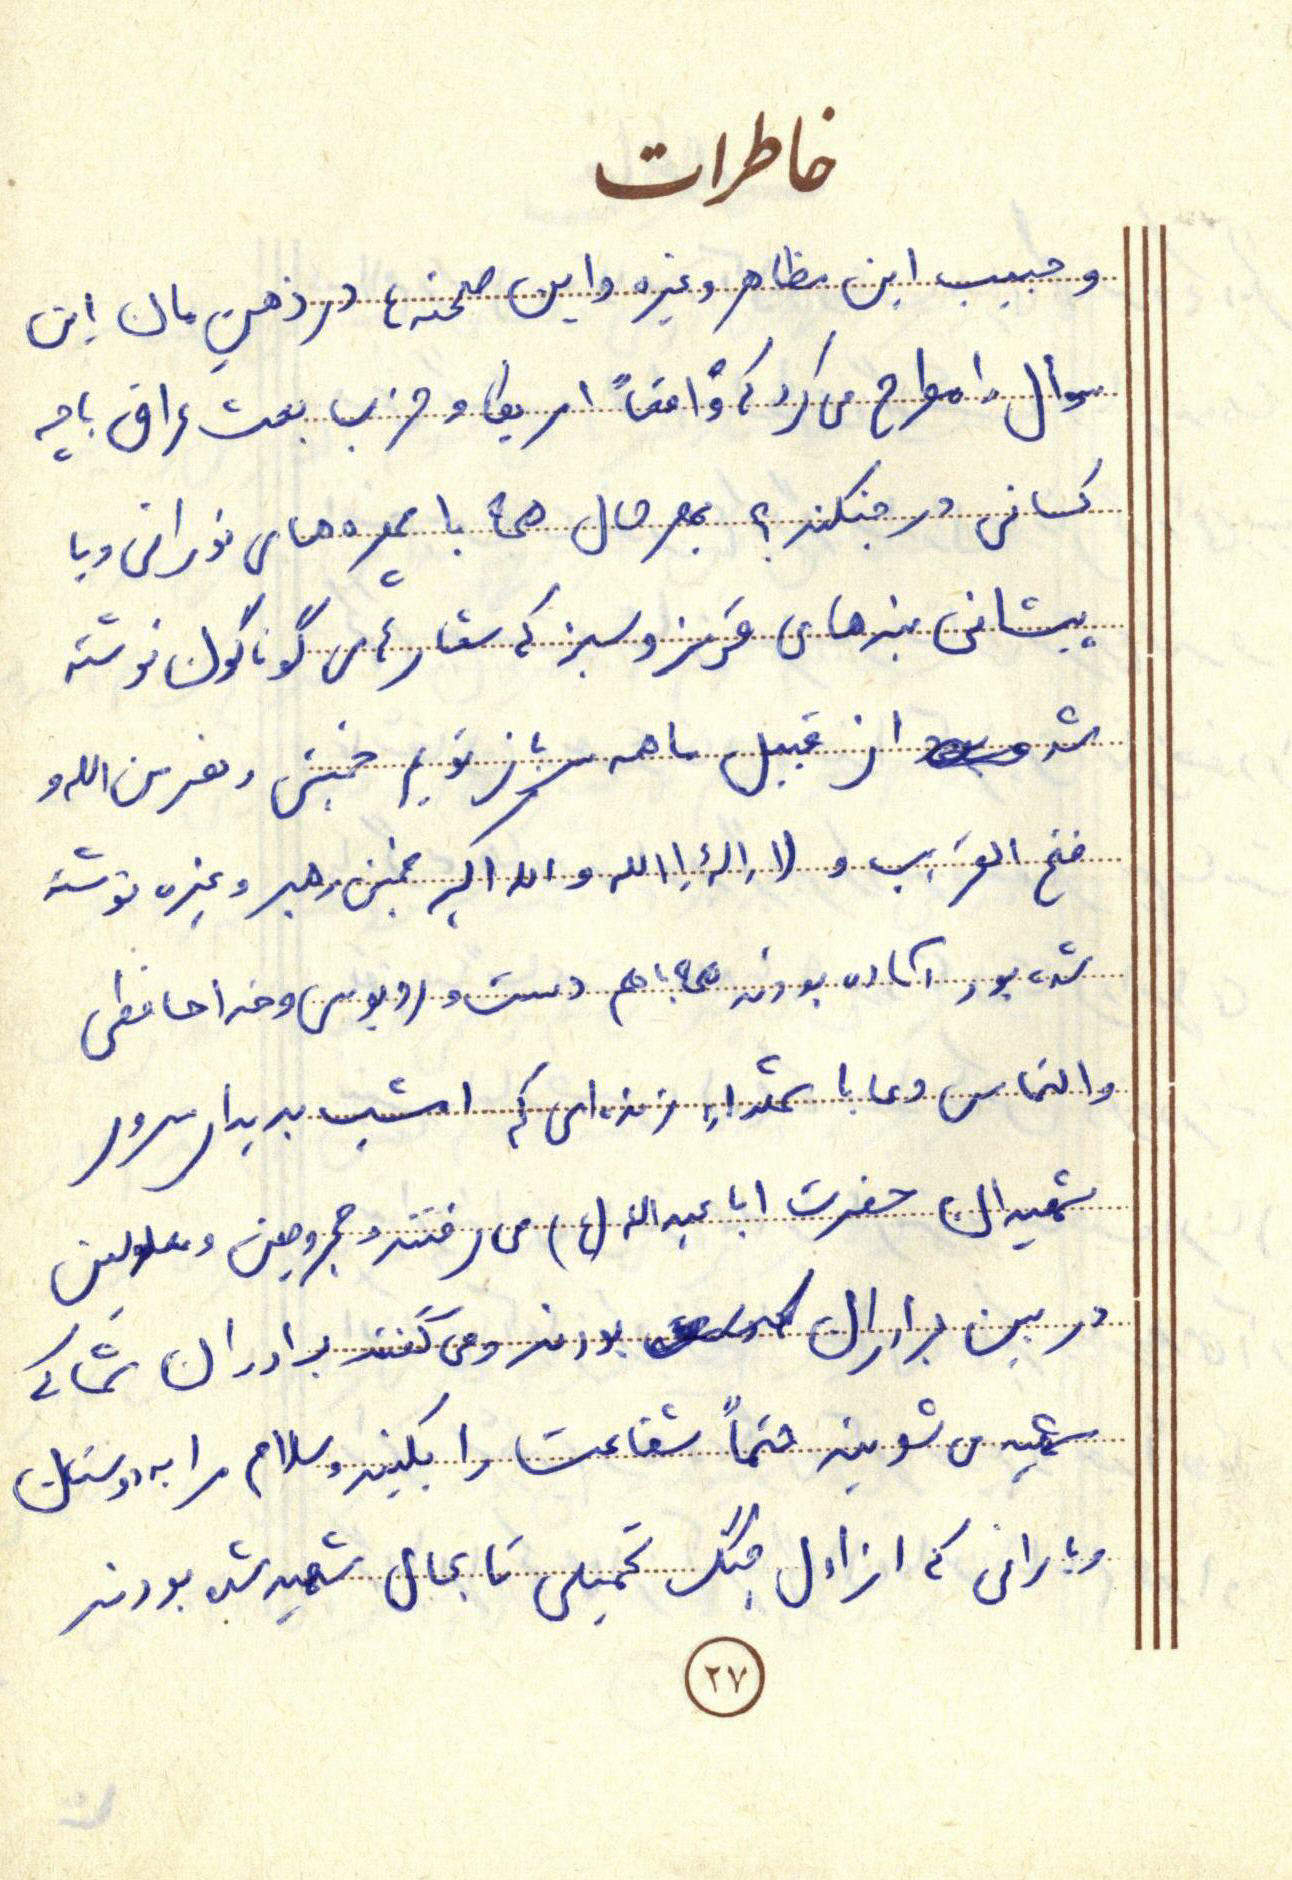 خاطرات
و حبیب ابن مظاهر و غیره و این صحنه ها در ذهن مان این
سوال را مطرح می کرد که واقعاً امریکا و حزب بعث عراق با چه
کسانی در جنگند؟ بهر حال همه با چهره های نورانی و با
پیشانی بندهای قرمز و سبز که شعارهای گوناگون نوشته
شده از قبیل ما همه سرباز توییم خمینی و نصر من الله و
فتح القریب و لا اله الا الله و الله اکبر خمینی رهبر و غیره نوشته
شده بود آماده بودند همه با هم دست و روبوسی و خداحافظی
و التماس دعا با شهداء زنده ای که امشب بدیدار سرور
شهیدان حضرت ابا عبدالله (ع) می رفتند و مجروحین و معلولین
در بین برادران بودند و می گفتند برادران شما که
شهید می شوید حتماً شفاعت ما را بکنید و سلام مرا به دوستان
و یارانی که از اول جنگ تحمیلی تا بحال شهید شده بودند
۲۷